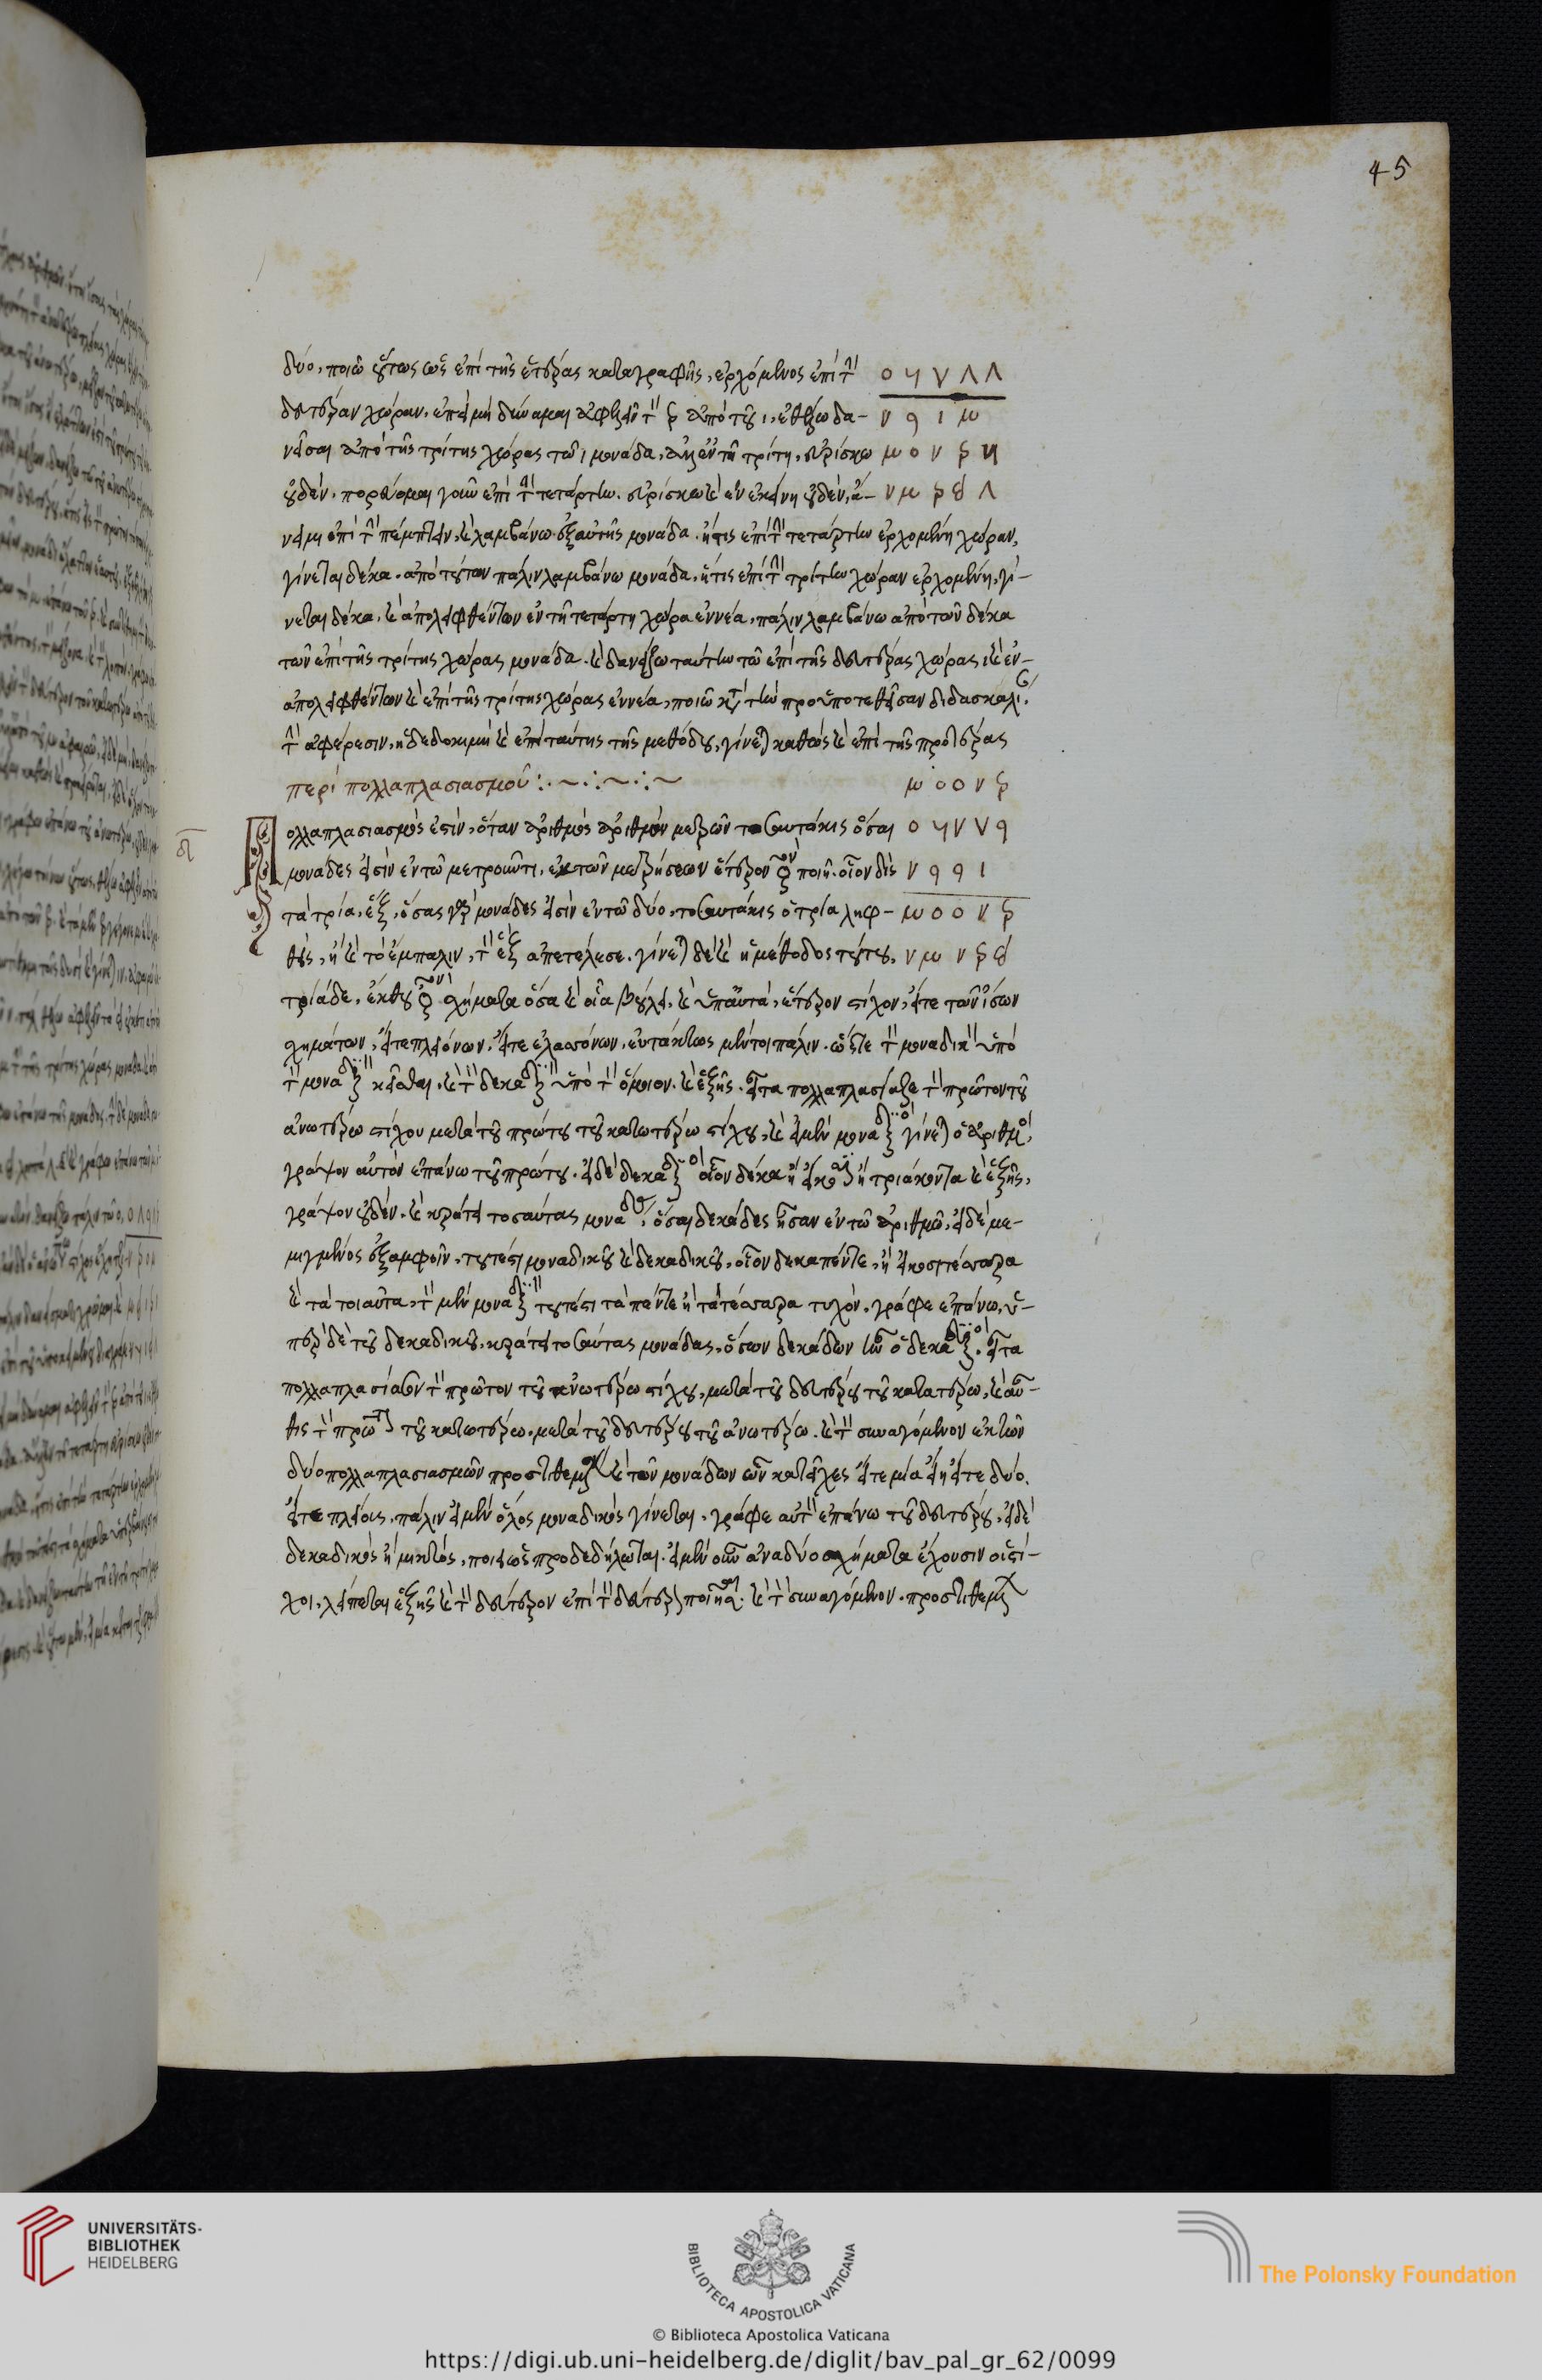 45
δύο, ποιῶ οὕτως ὡς ἐπὶ τῆς ἑτέρας καταγραφῆς, ἐρχόμενος ἐπὶ τὴν
δευτέραν χώραν, ἐπεὶ μὴ δύναμαι ἀφελεῖν τὸν ἀπὸ τοῦ ι, ἐθέλω δα-
νεῖσαι ἀπὸ τῆς τρίτης χώρας τῶ ι μονάδα, ἀλλ' ἐν τῆ τρίτη, εὑρίσκω
οὐδέν. πορεύομαι γοῦν ἐπὶ τὴν τετάρτην. εὑρίσκω καὶ ἐν ἐκείνη οὐδέν, ἄ-
νειμι ἐπὶ τὴν πέμπτην, καὶ λαμβάνω ἐξ αὐτῆς μονάδα. ἥτις ἐπὶ τὴν τετάρτην ἐρχομένη χώραν,
γίνεται δέκα. ἀπὸ τούτων πάλιν λαμβάνω μονάδα, ἥτις ἐπὶ τὴν τρίτην χώραν ἐρχομένη, γί-
νεται δέκα, καὶ ἀπολειφθέντων ἐν τῆ τετάρτη χώρα ἐννέα, πάλιν λαμβάνω ἀπὸ τῶν δέκα
τῶν ἐπὶ τῆς τρίτης χώρας μονάδα. καὶ δανείζω ταύτην τῶ ἐπὶ τῆς δευτέρας χώρας ι καὶ ἐν-
ἀπολειφθέντων καὶ ἐπὶ τῆς τρίτης χώρας ἐννέα, ποιῶ κατὰ τὴν προϋποτεθεῖσαν διδασκαλίαν
τὴν ἀφαίρεσιν, ἡ δὲ δοκιμὴ καὶ ἐπὶ ταύτης τῆς μεθόδου, γίνεται καθὼς καὶ ἐπὶ τῆς προτέρας
περὶ πολλαπλασιασμοῦ
Πολλαπλασιασμός ἐστιν, ὅταν ἀριθμὸς ἀριθμὸν μετρῶν τοσαυτάκις ὅσαι
μονάδες εἰσὶν ἐν τῶ μετροῦντι, ἐκ τῶν μετρήσεων ἕτερον ἀριθμὸν ποιῆ. οἷον δὶς
τὰ τρία, ἕξ, ὅσας γὰρ μονάδες εἰσὶν ἐν τῶ δύο, τοσαυτάκις ὁ τρία ληφ-
θεὶς, ἢ καὶ τὸ ἔμπαλιν, τὸν ἓξ ἀπετέλεσε. γίνεται δὲ καὶ ἡ μέθοδος τούτου,
τριᾶδε, ἔκθου ἀριθμῶν σχήματα ὅσα καὶ οἷα βούλει, καὶ ὑπ' αὐτὰ, ἕτερον στίχον, εἴτε τῶν ἴσων
σχημάτων, εἴτε πλειόνων, εἴτε ἐλασσόνων, εὐτάκτως μέντοι πάλιν. ὥστε τὸν μοναδικὸν ὑπὸ
τὸν μοναδικὸν κεῖσθαι, καὶ τὸν δεκαδικὸν ὑπὸ τὸν ὅμοιον. καὶ ἑξῆς. εἶτα πολλαπλασίαζε τὸν πρῶτον τοῦ
ἀνωτέρω στίχου μετὰ τοῦ πρώτου τοῦ κατωτέρω στίχου, καὶ εἰ μὲν μοναδικὸς γίνεται ὁ ἀριθμὸς,
γράψον αὐτὸν ἐπάνω τοῦ πρώτου. εἰ δὲ δεκαδικὸς οἷον δέκα ἢ εἴκοσι ἢ τριάκοντα καὶ ἑξῆς,
γράψον οὐδέν. καὶ κράτει τοσαύτας μονάδας, ὅσαι δεκάδες ἦσαν ἐν τῶ ἀριθμῶ, εἰ δὲ με-
μιγμένος ἐξ ἀμφοῖν, τουτέστι μοναδικοῦ καὶ δεκαδικοῦ, οἷον δεκαπέντε, ἢ εἰκοσιτέσσαρα
καὶ τὰ τοιαῦτα, τὸν μὲν μοναδικὸν τουτέστι τὰ πέντε ἢ τὰ τέσσαρα τυχὸν, γράφε ἐπάνω, ὑ-
πὲρ δὲ τοῦ δεκαδικοῦ, κράτει τοσαύτας μονάδας, ὅσων δεκάδων ἦν ὁ δεκαδικός. εἶτα
πολλαπλασίασον τὸν πρῶτον τοῦ ἀνωτέρω στίχου, μετὰ τοῦ δευτέρου τοῦ κατωτέρω, καὶ αὖ-
θις τὸν πρῶτον τοῦ κατωτέρω, μετὰ τοῦ δευτέρου τοῦ ἀνωτέρω. καὶ τὸν συναγόμενον ἐκ τῶν
δύο πολλαπλασιασμῶν προστιθεμένων καὶ τῶν μονάδων ὧν κατεῖχες εἴτε μία εἴη εἴτε δύο,
εἴτε πλείους, πάλιν εἰ μὲν ὅλος μοναδικὸς γίνεται, γράφε αὐτὸν ἐπάνω τοῦ δευτέρου, εἰ δὲ
δεκαδικὸς ἢ μικτὸς, ποίει ὡς προδεδήλωται. εἰ μὲν οὖν ἀνὰ δύο σχήματα ἔχουσιν οἱ στί-
χοι, λείπεται ἑξῆς καὶ τὸν δεύτερον ἐπὶ τὸν δεύτερον ποιῆσαι. καὶ τὸν συναγόμενον, προστιθεμένων
UNIVERSITÄTS-
BIBLIOTHEK
HEIDELBERG
BIBLIOTECA APOSTOLICA VATICANA
The Polonsky Foundation
© Biblioteca Apostolica Vaticana
https://digi.ub.uni-heidelberg.de/diglit/bav_pal_gr_62/0099